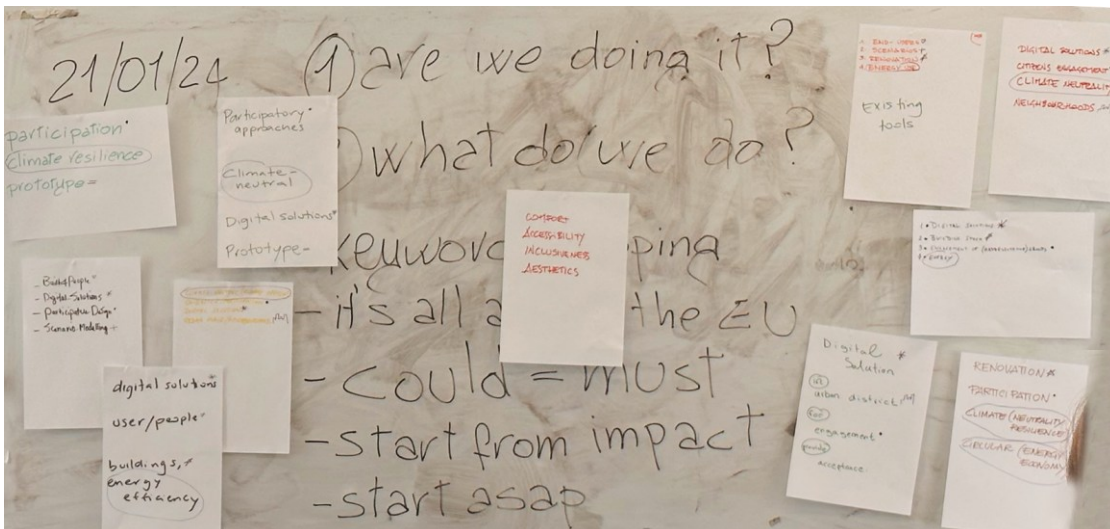 21/01/24
1) are we doing it?
) what do we do?
keyword pping
- it's all a the EU
- could = must
- start from impact
- start asap
participation
climate resilience
prototype =
Participatory
approaches
Climate-
neutral
Digital solutions*
Prototype -
- Digital Solutions *
- Participative Design
- Scenarios Modelling +
digital solutions*
user/people
buildings,
energy
efficiency
COMFORT
ACCESSIBILITY
INCLUSIVENESS
AESTHETICS
1. END-USERS
2. SCENARIOS
3. RENOVATION
4. ENERGY
Existing
tools
DIGITAL SOLUTIONS *
CITIZENS ENGAGEMENT
CLIMATE NEUTRALI
NEIGHBOURHOODS
1 • DIGITAL SOLUTIONS *
2 • BUILDING STOCK
ENERGY
Digital *
Solution
in
urban district,
for
engagement
acceptance.
RENOVATION *
PARTICIPATION
CLIMATE (NEUTRALITY
RESILIENCE)
CIRCULAR (ENERGY
ECONOMY